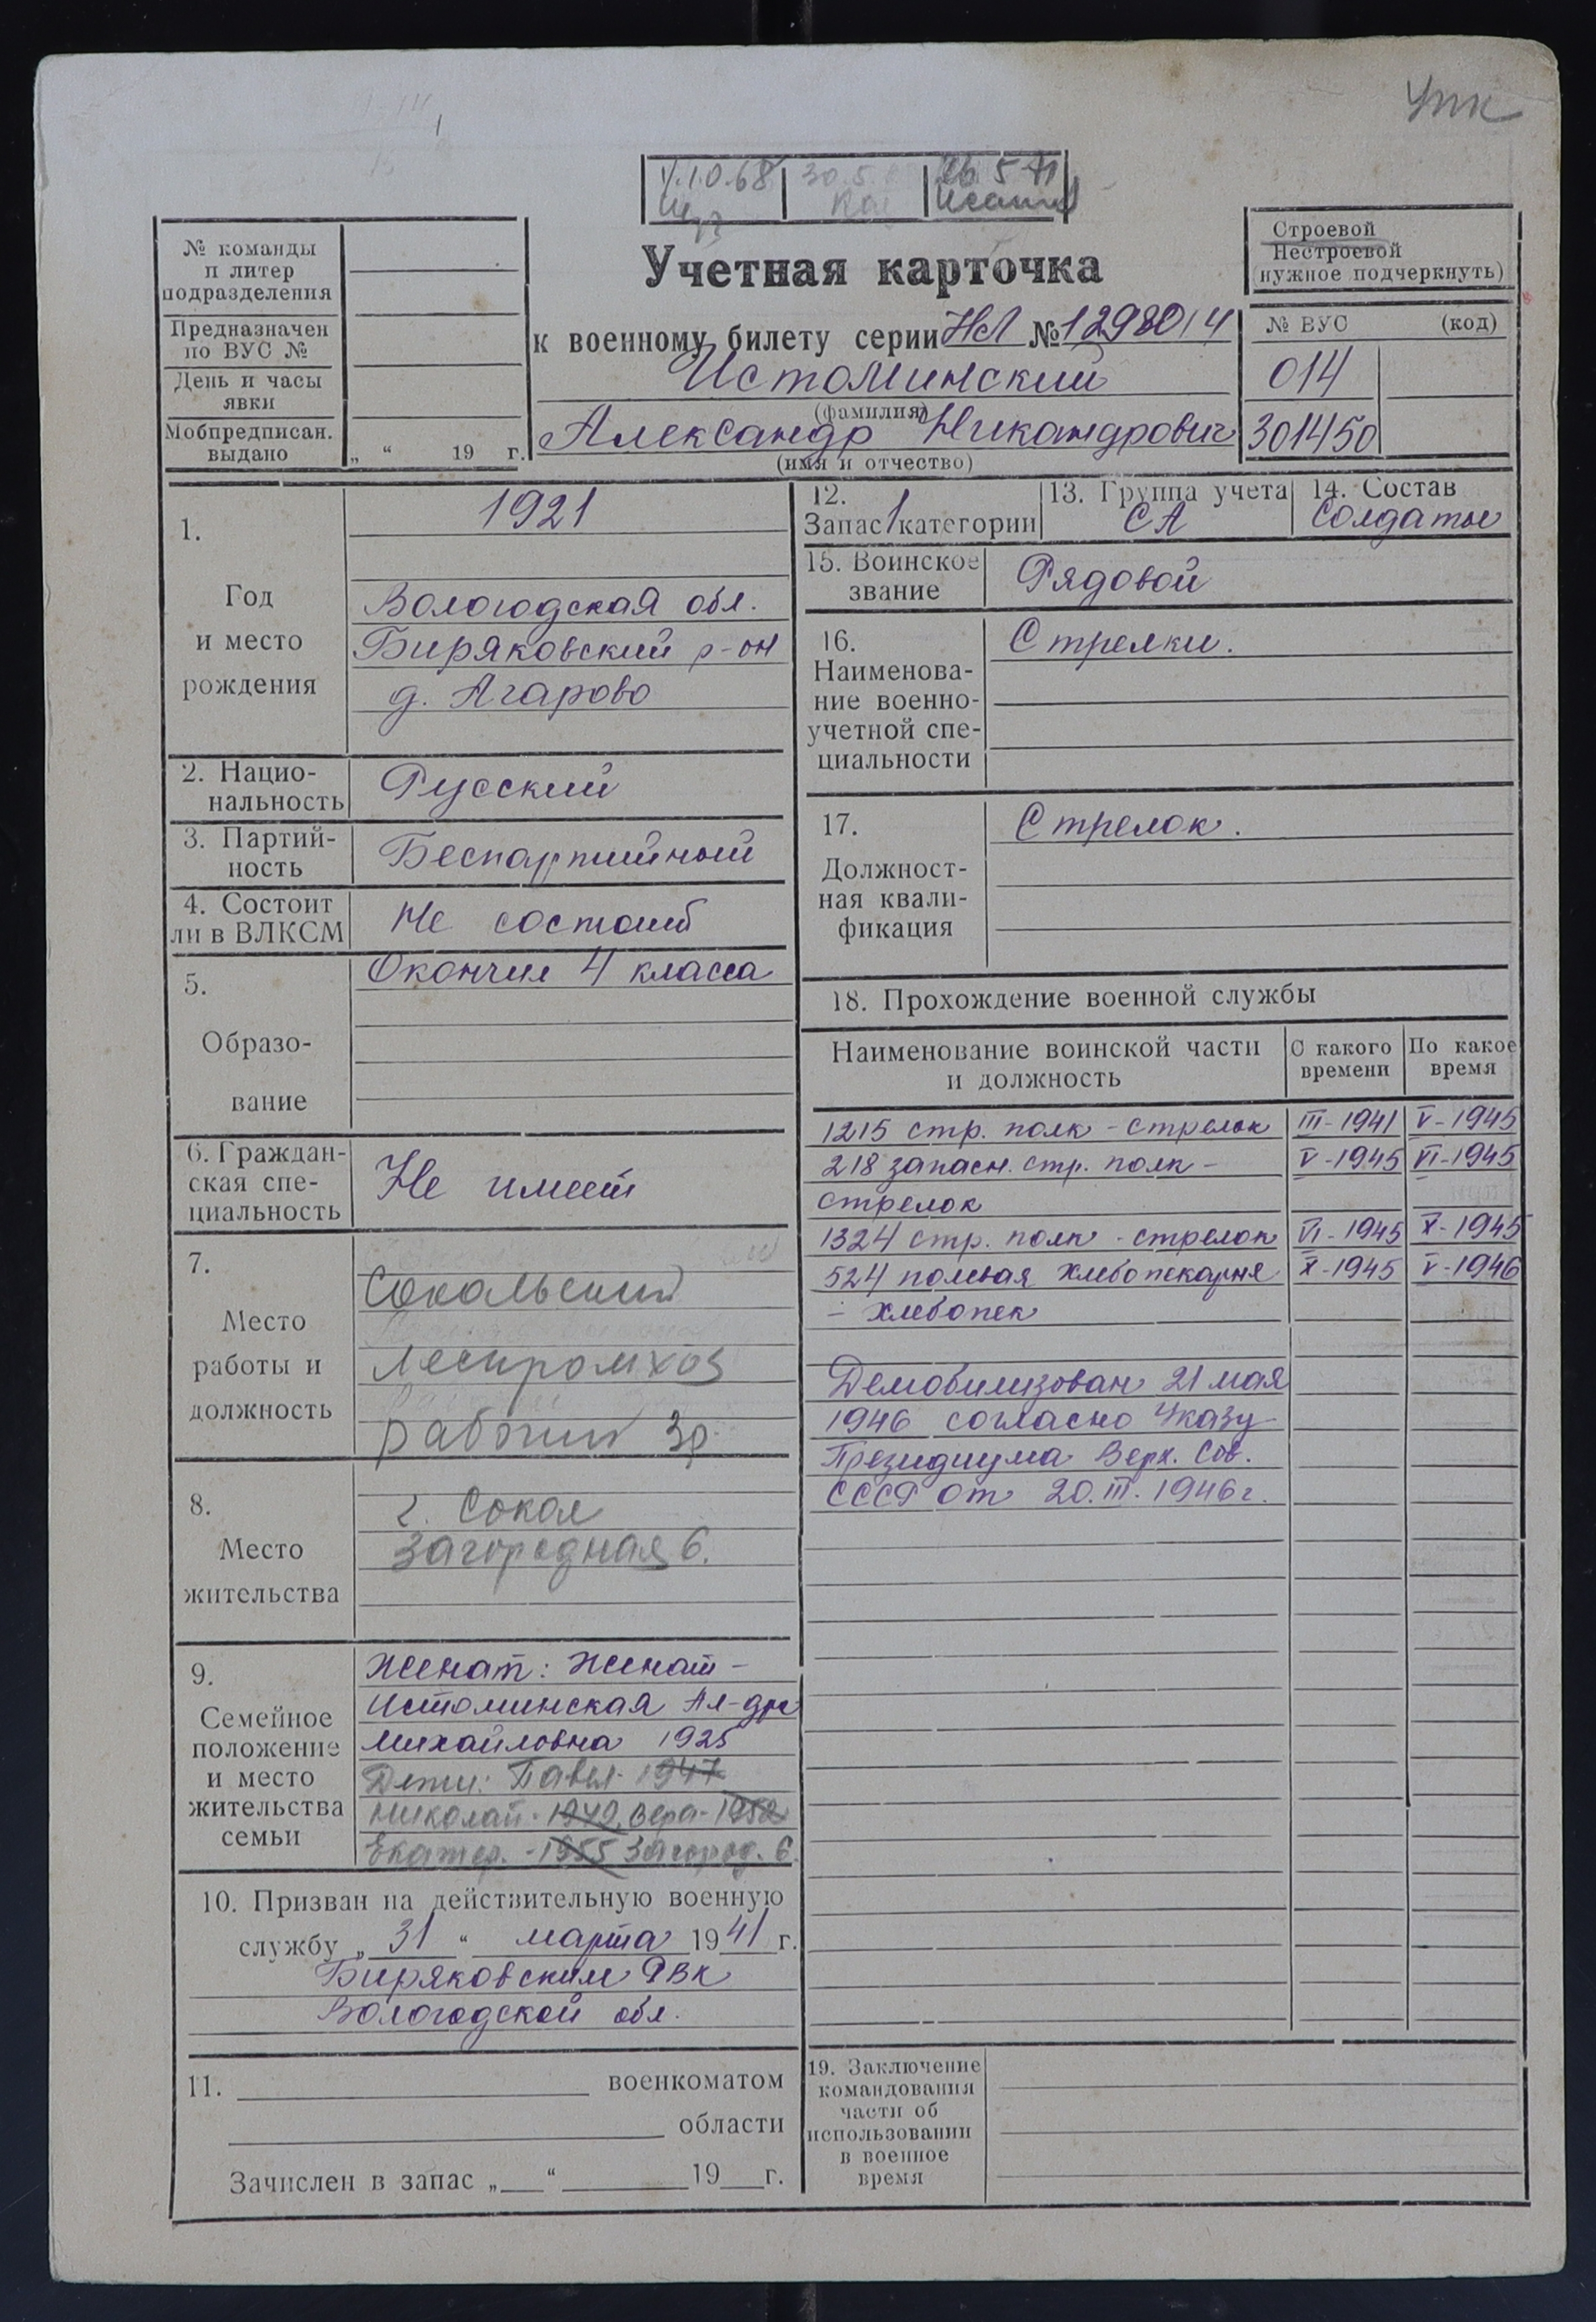 Упк
1.10.68
30.5
26 5 71
№ команды
и литер
подразделения
Предназначен
по ВУС №
День и часы
явки
Мобпредписан.
выдано
„ “ 19 г.
Учетная карточка
к военному билету серии НЛ № 1298014
Истоминский
(фамилия)
Александр Никандрович
(имя и отчество)
Строевой
Нестроевой
(нужное подчеркнуть)
№ ВУС (код)
014
301450
1.
Год
и место
рождения
1921
Вологодская обл.
Биряковский р-он
д. Агарово
2. Нацио-
нальность
Русский
3. Партий-
ность
Беспартийный
4. Состоит
ли в ВЛКСМ
Не состоит
5.
Образо-
вание
Окончил 4 класса
6. Граждан-
ская спе-
циальность
Не имеет
7.
Место
работы и
должность
Сокальский
Леспромхоз
рабочий 3р.
8.
Место
жительства
г. Сокол
Загородная 6.
9.
Семейное
положение
и место
жительства
семьи
Женат: Женат -
Истоминская Ал-дра
Михайловна 1925
Дети: Павел - 1947
Николай - 1949, Вера - 1952
Екатер. - 1955 Загород. 6.
10. Призван на действительную военную
службу „ 31 “ марта 1941 г.
Биряковским РВК
Вологодской обл.
11. военкоматом
области
Зачислен в запас „ “ 19 г.
12.
Запас 1 категории
13. Группа учета
СА
14. Состав
Солдаты
15. Воинское
звание
Рядовой
16.
Наименова-
ние военно-
учетной спе-
циальности
Стрелки.
17.
Должност-
ная квали-
фикация
Стрелок.
18. Прохождение военной службы
Наименование воинской части
и должность
С какого
времени
По какое
время
1215 стр. полк - стрелок III - 1941 V - 1945
218 запасн. стр. полк - V - 1945 VI - 1945
стрелок
1324 стр. полк - стрелок VI - 1945 X - 1945
524 полевая хлебопекарня X - 1945 V - 1946
- хлебопек
Демобилизован 21 мая
1946 согласно Указу
Президиума Верх. Сов.
СССР от 20.III.1946 г.
19. Заключение
командования
части об
использовании
в военное
время